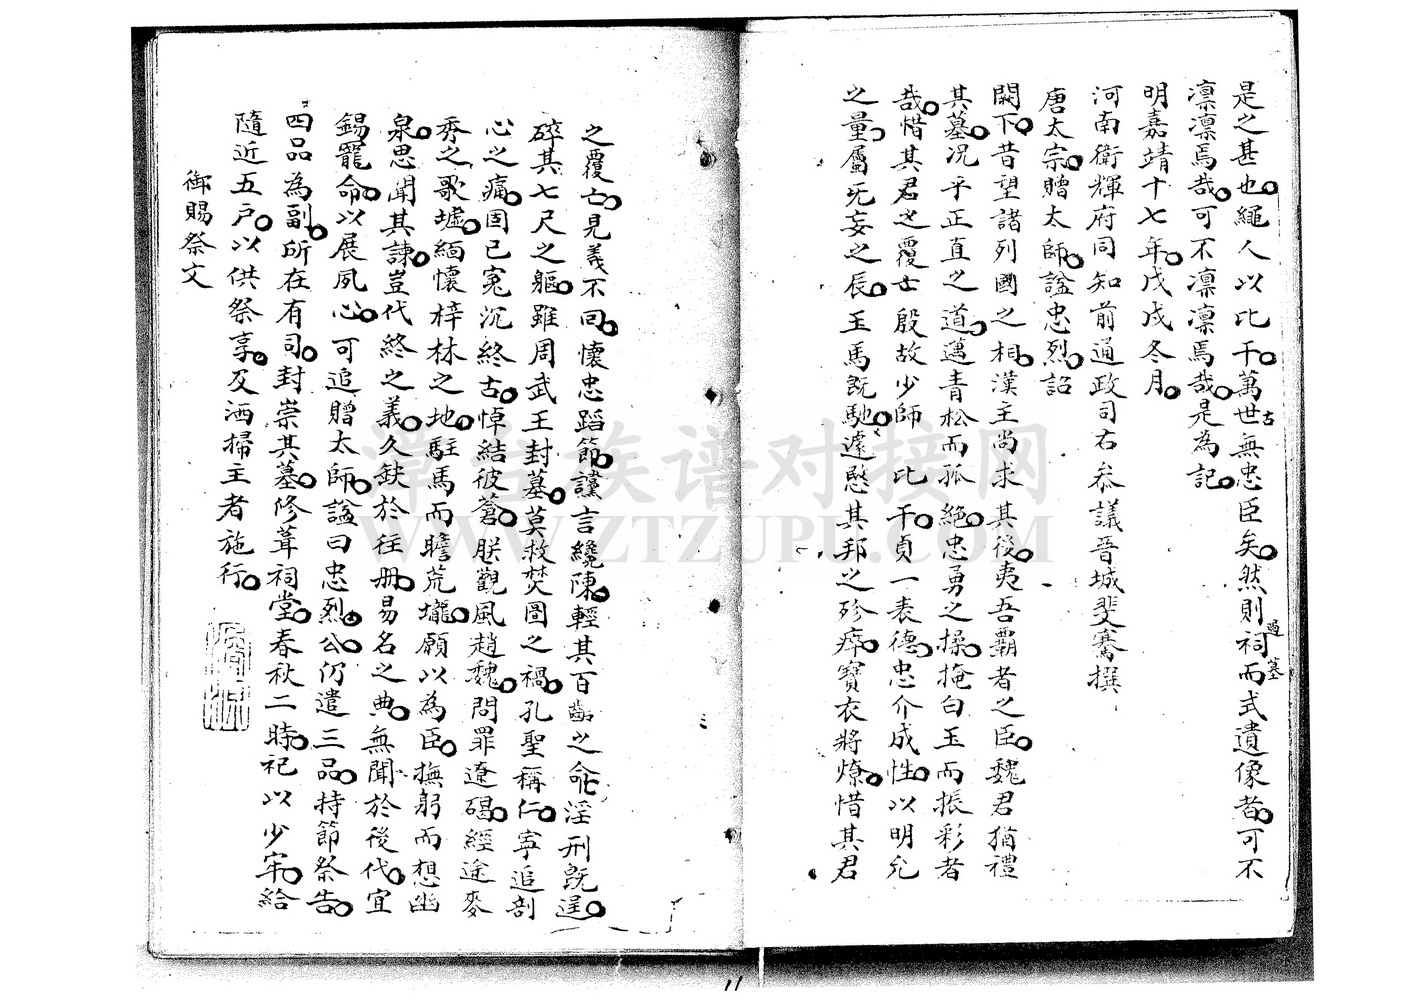 是之甚也繩人以比干萬世無忠臣矣然則祠而式遺像者可不
古
過墓
凛凛焉哉可不凛凛焉哉是為記
明嘉靖十七年戊戌冬月
河南衛輝府同知前通政司右叅議晉城斐騫撰
唐太宗贈太師諡忠烈詔
闕下昔望諸列國之相漢王尚求其後夷吾覇者之臣魏君猶禮
其墓况乎正直之道邁青松而孤絶忠勇之操掩白玉而振彩者
哉惜其君之覆亡殷故少師比干貞一表德忠介成性以明允
之量屬旡妄之辰玉馬旣馳遽慇其邦之殄瘁寶衣將燎惜其君
之覆亡見義不回懷忠蹈節讜言纔陳輕其百齡之命淫刑旣逞
碎其七尺之軀雖周武王封墓莫救焚圖之禍孔聖稱仁寧追剖
心之痛固已寃沉終古悼結彼蒼朕觀風趙魏問罪遼碣經途麥
秀之歌墟緬懷梓林之地駐馬而瞻荒壠願以為臣撫躬而想幽
泉思聞其諫豈代終之義久缺於往册易名之典無聞於後代宜
錫寵命以展夙心可追贈太師諡曰忠烈公仍遣三品持節祭告
四品為副所在有司封崇其墓修葺祠堂春秋二時祀以少牢給
隨近五戶以供祭享及洒掃主者施行
御賜祭文
譚台族谱对接网
WWW.ZTZUPU.COM
11